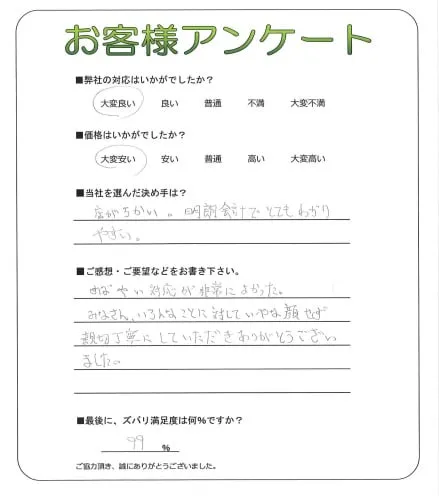 お客様アンケート
■弊社の対応はいかがでしたか?
大変良い 良い 普通 不満 大変不満
■価格はいかがでしたか?
大変安い 安い 普通 高い 大変高い
■当社を選んだ決め手は?
店がちかい。明朗会計でとてもわかり
やすい。
■ご感想・ご要望などをお書き下さい。
すばやい対応が非常によかった。
みなさん、いろんなことに対していやな顔せず
親切丁寧にしていただきありがとうござい
ました。
■最後に、ズバリ満足度は何%ですか?
99 %
ご協力頂き、誠にありがとうございました。